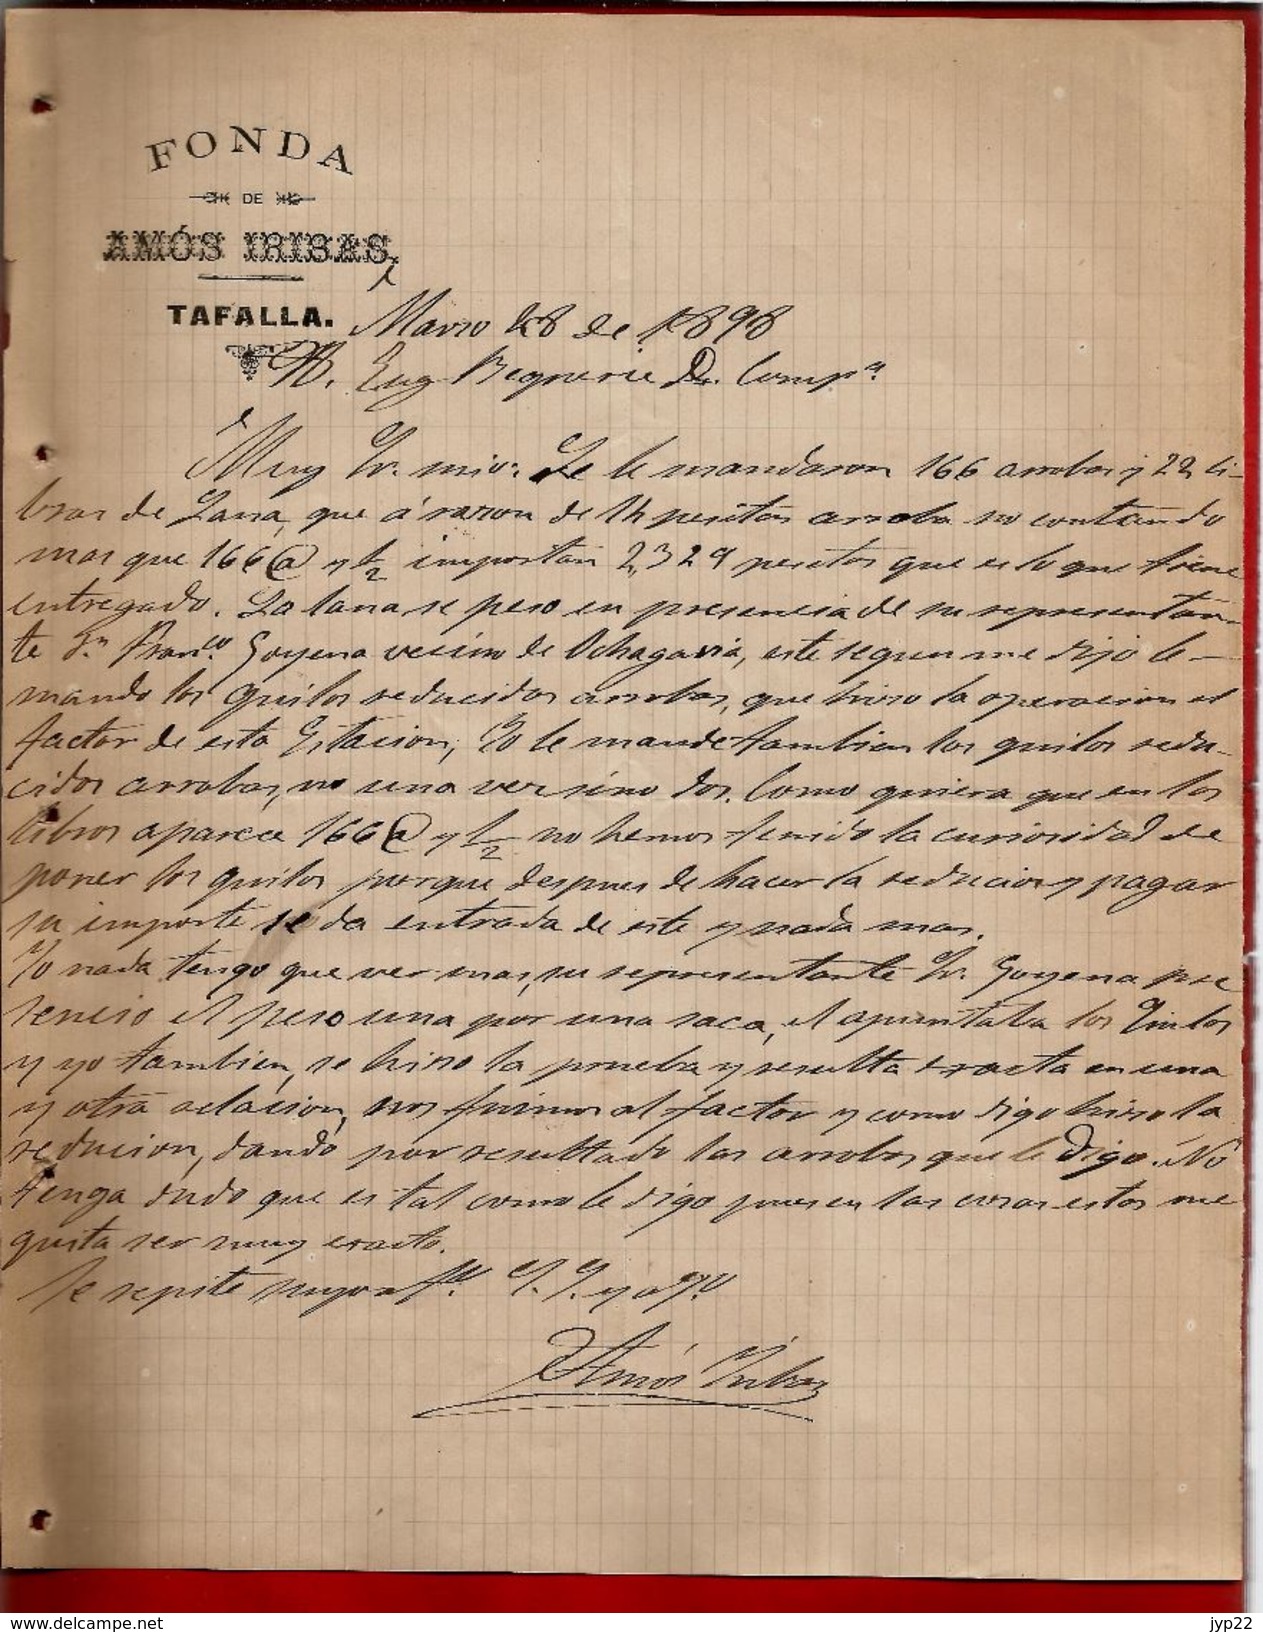 FONDA
DE
AMÓS IRIBAS
TAFALLA.
Marzo 28 de 1898
Eug Bequerie Comp.ª
Muy Sr. mio: Se le mandaron 166 arrobas y 22 li-
bras de Lana, que á razon de 14 pesetas arroba no contando
mas que 166@ y 1/2 importan 2,329 pesetas que es lo que tiene
entregado. La lana se peso en presencia de su representan-
te Dn. Franco. Goyena vecino de Ochagavia, este segun me dijo le
mando los quilos reducidos arrobas, que hizo la operacion el
factor de esta Estacion, Yo le mande tambien los quilos redu-
cidos arrobas, no una vez sino dos. Como quiera que en los
libros aparece 166@ y 1/2 no hemos tenido la curiosidad de
poner los quilos porque despues de hacer la reducion y pagar
su importe se da entrada de este y nada mas.
Yo nada tengo que ver mas, su representante Sr. Goyena pre
sencio el peso una por una saca, el apuntaba los Quilos
y yo tambien, se hizo la prueba y resulta exacta en una
y otra relacion, nos fuimos al factor y como digo hizo la
reducion, dando por resultado las arrobas que le digo. No
tenga duda que es tal como le digo pues en las cosas estas me
gusta ser muy exacto.
Se repite suyo af.mo S. S. y
Amós Iribas
www.delcampe.net
jyp22